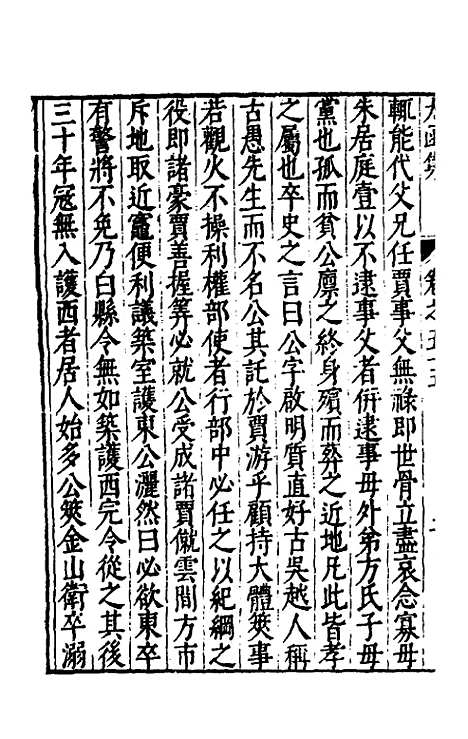 輒能代父兄任賈事父無祿即世骨立盡哀念寡母
朱居庭壹以不逮事父者併逮事母外弟方氏子母
黨也孤而貧公廪之終身殯而葬之近地凡此皆孝
之屬也卒史之言曰公字啟明質直好古吳越人稱
古愚先生而不名公其託於賈游乎顧持大體筴事
若觀火不操利權部使者行部中必任之以紀綱之
役即諸豪賈善握筭必就公受成諸賈僦雲間方市
斥地取近竈便利議築室護東公灑然曰必欲東卒
有警將不免乃白縣令無如築護西完令從之其後
三十年冦無入護西者居人始多公筴金山衛卒溺